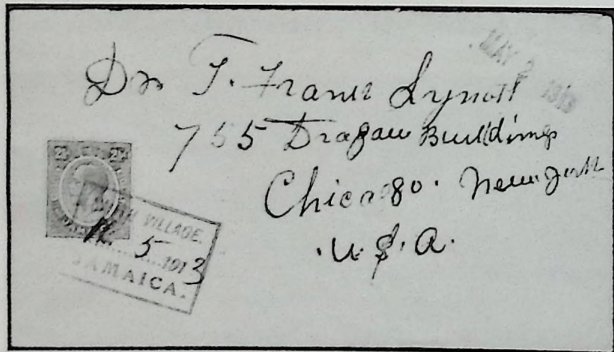 MAY 2 1913
Dr T. Frank Lynott
755 Dragau Buildings
Chicago. New York
U.S.A.
2½ 2½
VILLAGE.
5 1913
JAMAICA.